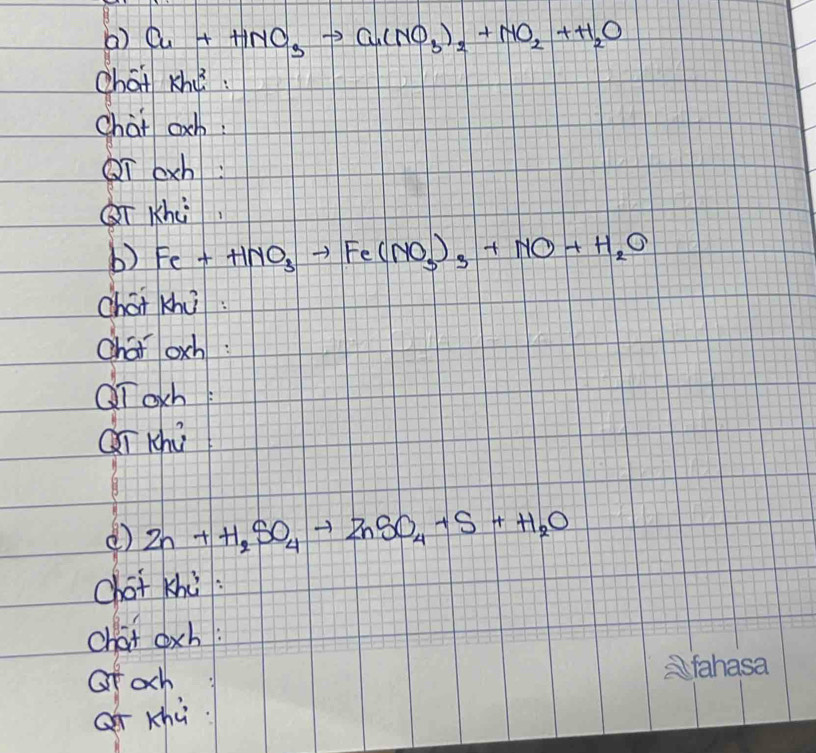 a) Cu + HNO₃ → Cu(NO₃)₂ + NO₂ + H₂O
Chất khử:
Chất oxh:
QT oxh:
QT khử:
b) Fe + HNO₃ → Fe(NO₃)₃ + NO + H₂O
Chất khử:
Chất oxh:
QT oxh:
QT khử
c) Zn + H₂SO₄ → ZnSO₄ + S + H₂O
Chất khử:
Chất oxh:
fahasa
QT oxh:
QT khử: